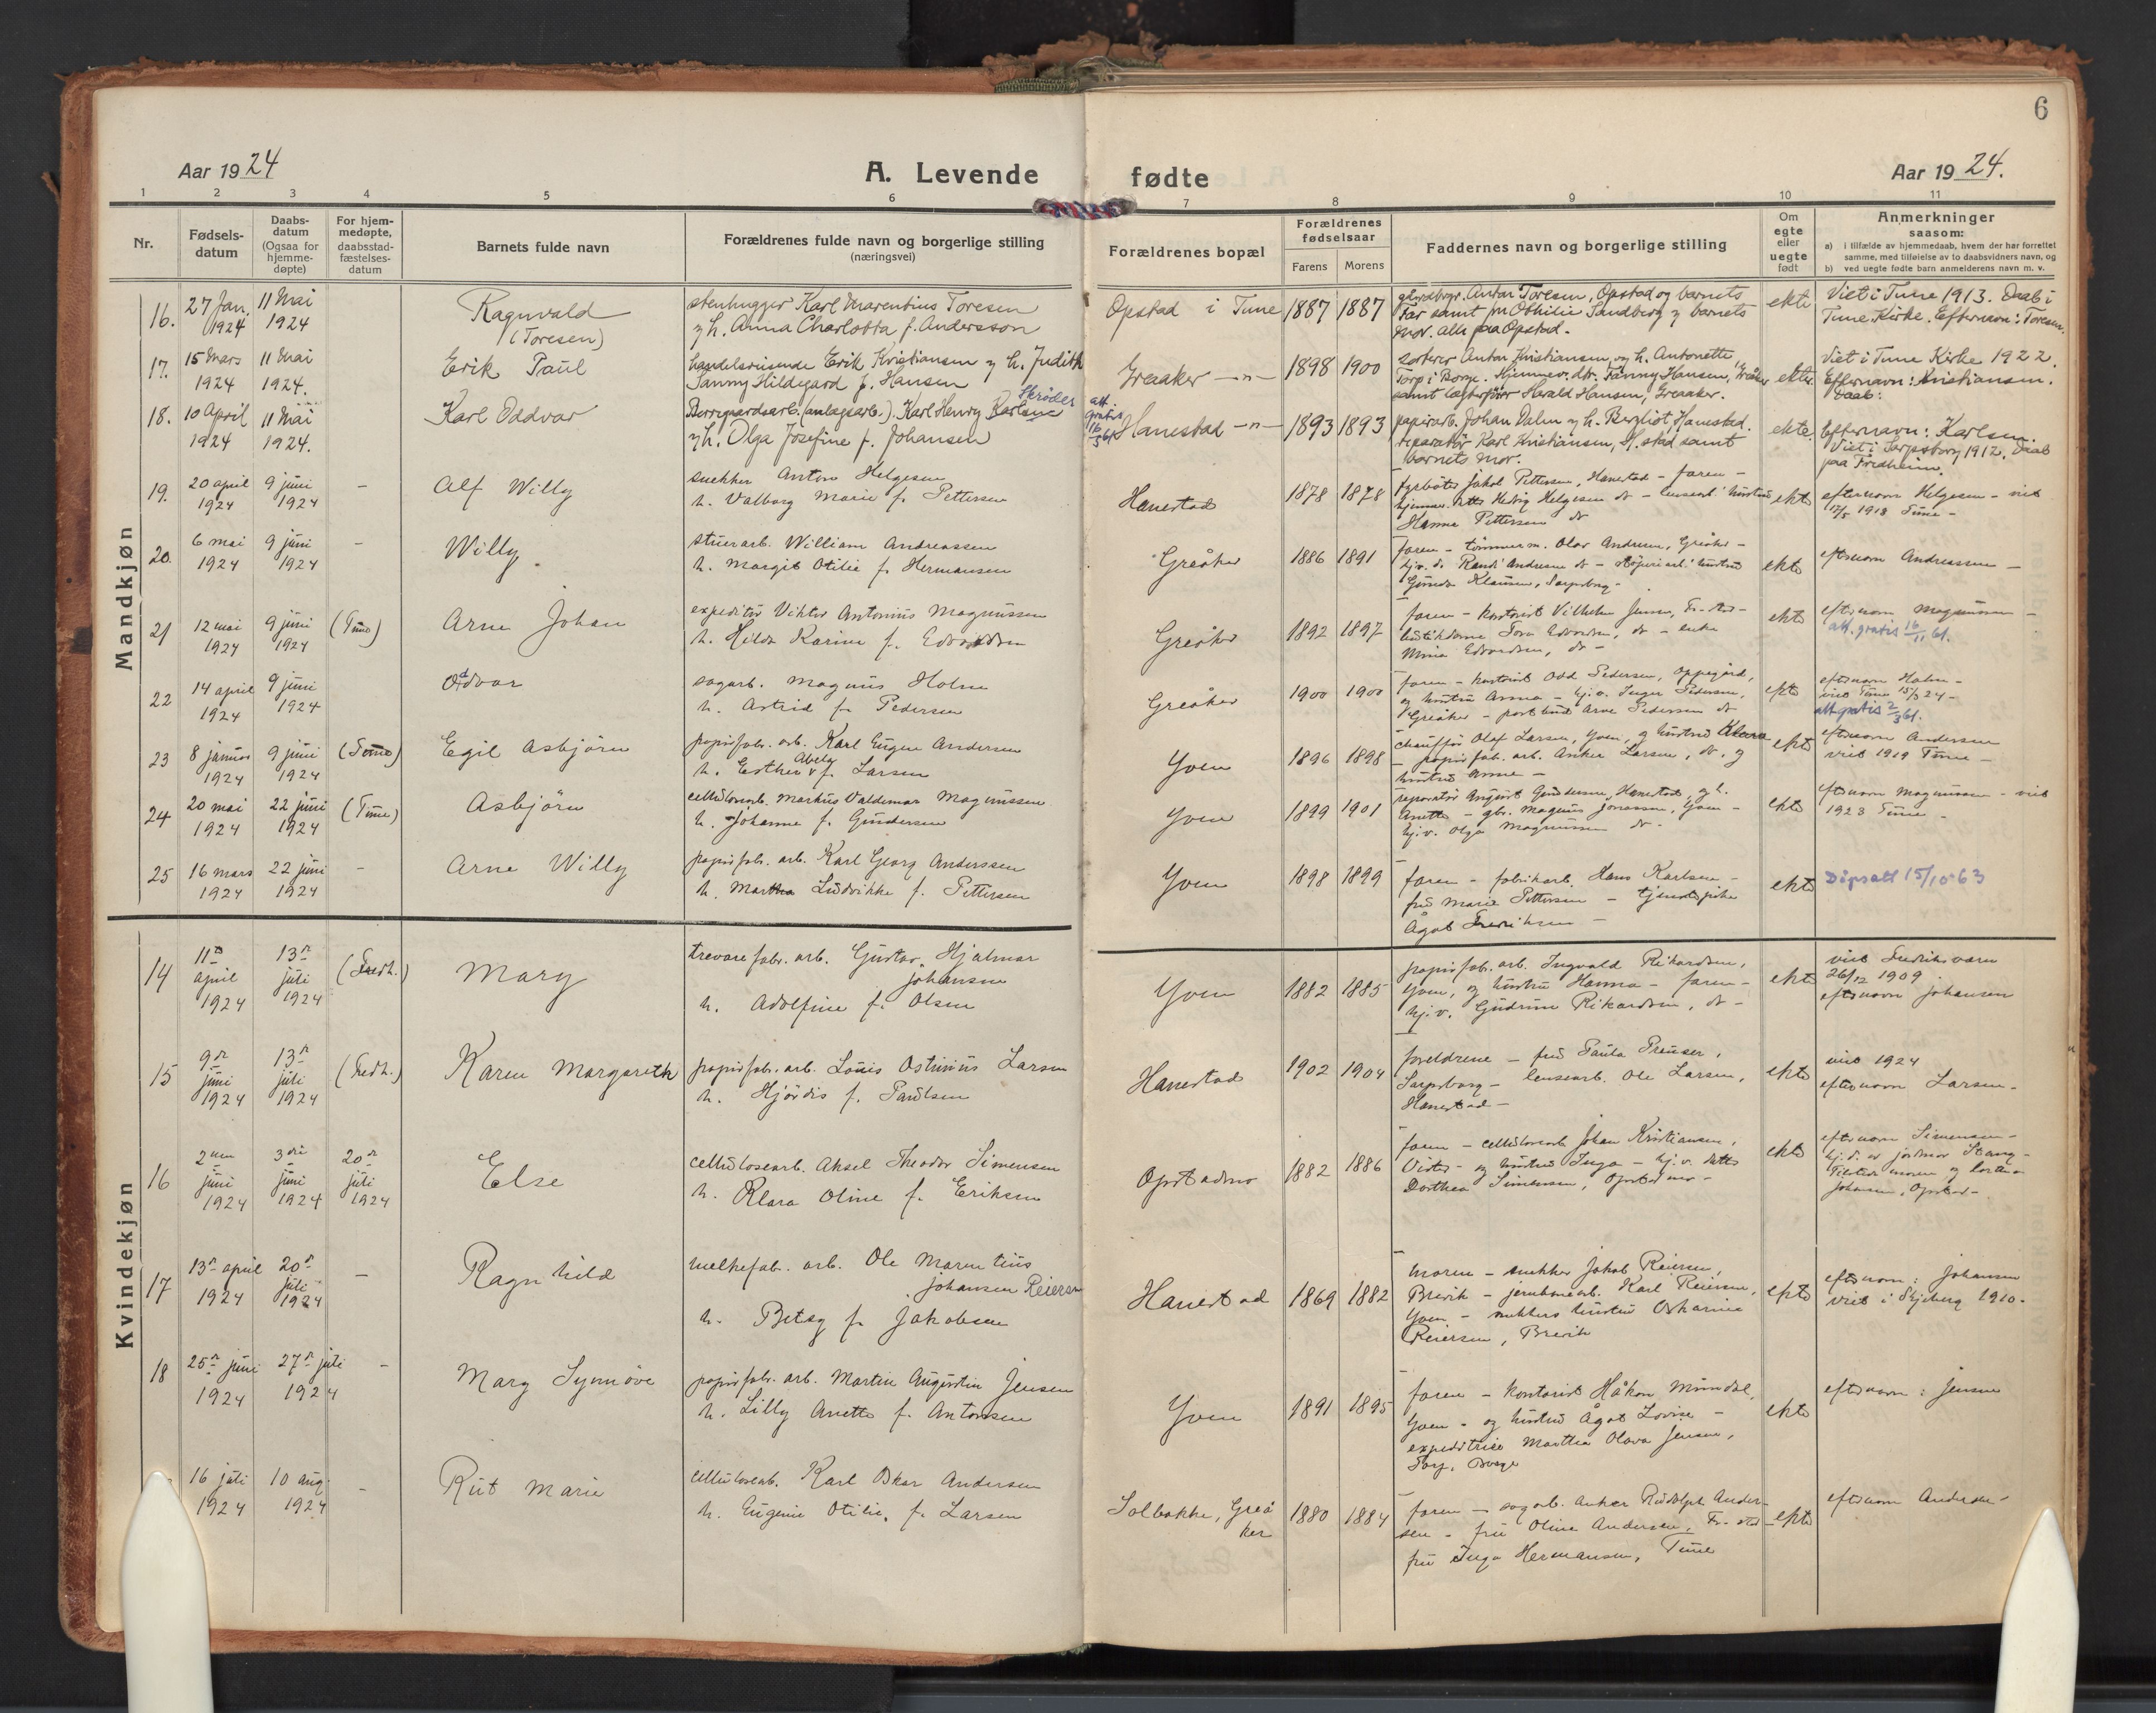 6
Aar 1924
A. Levende fødte
Aar 1924.
1 2 3 4 5 6 7 8 9 10 11
Nr.
Fødsels-
datum
Daabs-
datum
(Ogsaa for
hjemme-
døpte)
For hjem-
medøpte,
daabsstad-
fæstelses-
datum
Barnets fulde navn
Forældrenes fulde navn og borgerlige stilling
(næringsvei)
Forældrenes bopæl
Forældrenes
fødselsaar
Farens Morens
Faddernes navn og borgerlige stilling
Om
egte
eller
uegte
født
Anmerkninger
saasom:
a) i tilfælde av hjemmedaab, hvem der har forrettet
samme, med tilføielse av to daabsvidners navn, og
b) ved uegte fødte barn anmelderens navn m. v.
Mandkjøn
16.
27 Jan.
1924
11 Mai
1924
Ragnvald
(Toresen)
stenhugger Karl Marentius Toresen
og h. Anna Charlotta f. Andersson
Opstad i Tune
1887 1887
gaardbrgr. Anton Toresen, Opstad og barnets
Far samt fru Othilie Sandberg og barnets
mor. alle paa Opstad.
ekte
Viet i Tune 1913. Daab i
Tune Kirke. Efternavn: Toresen.
17.
15 Mars
1924
11 Mai
1924.
Erik Paul
handelsreisende Erik Kristiansen og h. Judith
Fanny Hildegard f. Hansen
Greaaker -"-
1898 1900
sorterer Anton Kristiansen og h. Antonette,
Torp i Borge. Hjemmev. dtr. Fanny Hansen, Greåker
samt Harald Hansen, Greaaker.
ekte.
Viet i Tune Kirke 1922.
Efternavn: Kristiansen.
Daab:
18.
10 April
1924
11 Mai
1924.
Karl Oddvar
Berggaardsarb. (anlagsarb.). Karl Henry Karlsen Skrøder
og h. Olga Josefine f. Johansen
att.
gratis
16/3 61
Hanestad -"-
1893 1893
papirarb. Johan Dalen og h. Bergliot, Hanestad.
reparatør Karl Kristiansen, S.stad samt
barnets mor.
ekte.
Efternavn: Karlsen.
Viet i Sarpsborg 1912. Daab
paa Fredheim.
19.
20 april
1924
9 juni
1924
-
Alf Willy
snekker Anton Helgesen
h. Valborg Marie f. Pettersen
Hanestad
1878 1878
fyrbøter Jakob Pettersen, Hanestad - faren -
hjemmev. dtr Hedvig Helgesen do - hustru
Hanna Pettersen do
ekte
efternavn Helgesen - viet
1918 Tune -
20.
6 mai
1924
9 juni
1924
-
Willy
stuerarb. William Andreassen
h. Margit Otilie f. Hermansen
Greåker
1886 1891
faren - tømmerm. Olav Andresen, Greåker -
hjv. d. Randi Andresen do - hustru
Gunda Klausen, Sarpsborg -
ekte
efternavn Andreassen -
21
12 mai
1924
9 juni
1924
(Tune)
Arne Johan
expeditør Viktor Antonius Magnussen
h. Hilda Karine f. Edvardsen
Greåker
1892 1897
faren - kontorist Vilhelm Jensen, Fr-stad -
Edvardsen, do - enke
Mina Edvardsen, do -
ekte
efternavn Magnussen -
att. gratis 16/11 61.
22
14 april
1924
9 juni
1924
Oddvar
sagarb. Magnus Holm
h. Astrid f. Pedersen
Greåker
1900 1900
faren - kontorist Odd Pedersen, Oppegård,
og hustru Anna - hj.v. Inger Pedersen,
Greåker - postbud Arve Pedersen do
ekte
efternavn Holm -
viet Tune 15/3 24 -
att gratis 2/3 61.
23
8 januar
1924
9 juni
1924
(Tune)
Egil Asbjörn
papirfabr. arb. Karl Eugen Andersen
h. Esther Abela f. Larsen
Yven
1896 1898
chauffør Olaf Larsen, Yven, og hustru Klara
- papirfab. arb. Anker Larsen, do, og
hustru Anna -
ekte
efternavn Andersen
viet 1919 Tune -
24
20 mai
1924
22 juni
1924
(Tune)
Asbjörn
cellulosearb. Markus Valdemar Magnussen
h. Johanne f. Gundersen
Yven
1899 1901
reparatør August Gundersen, Hanestad, og h.
Anette - gbr. Magnus Jonassen, Yven -
hj.v. Olga Magnussen do -
ekte
efternavn Magnussen - viet
1923 Tune -
25
16 mars
1924
22 juni
1924
-
Arne Willy
papirfabr. arb. Karl Georg Anderssen
h. Martha Ludvikke f. Pettersen
Yven
1898 1899
faren - fabrikarb. Hans Karlsen -
fru Marie Pettersen - tjenestepike
Ågot Fredriksen -
ekte
Dåpsatt 15/10-63
Kvindekjøn
14
11te
april
1924
13de
juli
1924
(Fredh.)
Mary
trevarefabr. arb. Gustav Hjalmar
Johansen
h. Adolfine f. Olsen
Yven
1882 1885
papirfab. arb. Ingvald Rikardsen,
Yven, og hustru Hanna - faren -
hj.v. Gudrun Rikardsen, do -
ekte
viet Fredriksværn
26/12 1909
efternavn Johansen
15
9de
juni
1924
13de
juli
1924
(Fredh.)
Karen Margareth
papirfabr. arb. Louis Ostinius Larsen
h. Hjördis f. Paulsen
Hanestad
1902 1904
foreldrene - fru Paula Preuser,
Sarpsborg - lensearb. Ole Larsen,
Hanestad -
ekte
viet 1924
efternavn Larsen -
16
2nen
juni
1924
3die
juni
1924
20de
juli
1924
Else
cellulosearb. Aksel Theodor Simensen
h. Klara Oline f. Eriksen
Opstadmo
1882 1886
faren - cellulosearb. Johan Kristiansen,
Visters - og hustru Inga - hj.v. datter
Dorthea Simensen, Opstadmo -
ekte
efternavn Simensen -
hj.d. av jordmor Stang -
Tilstede moren og
Johansen, Opstad -
17
13de april
1924
20de
juli
1924
-
Ragnhild
melkefab. arb. Ole Marentius
Johansen Reiersen
h. Betsy f. Jakobsen
Hanestad
1869 1882
moren - snekker Jakob Reiersen,
Brevik - jernbanearb. Karl Reiersen,
Yven - snekkers hustru Oskarine
Reiersen, Brevik
ekte
efternavn: Johansen
viet i Skjeberg 1910 -
18
25de juni
1924
27de juli
1924
-
Mary Synnöve
papirfabr. arb. Martin Augustin Jensen
h. Lilly Anette f. Antonsen
Yven
1891 1895
faren - kontorist Håkon Mundal,
Yven - og hustru Ågot Lovise -
expeditrise Martha Olava Jensen,
Torp, Borge
ekte
efternavn: Jensen
16 juli
1924
10 aug.
1924
-
Rut Marie
cellulosearb. Karl Oskar Andersen
h. Eugenie Otilie, f. Larsen
Solbakke, Greå
ker
1880 1884
faren - sagarb. Anker Rudolph Ander-
sen - fru Oline Andersen, Fr-stad -
fru Inga Hermansen, Tune
ekte
efternavn Andersen -